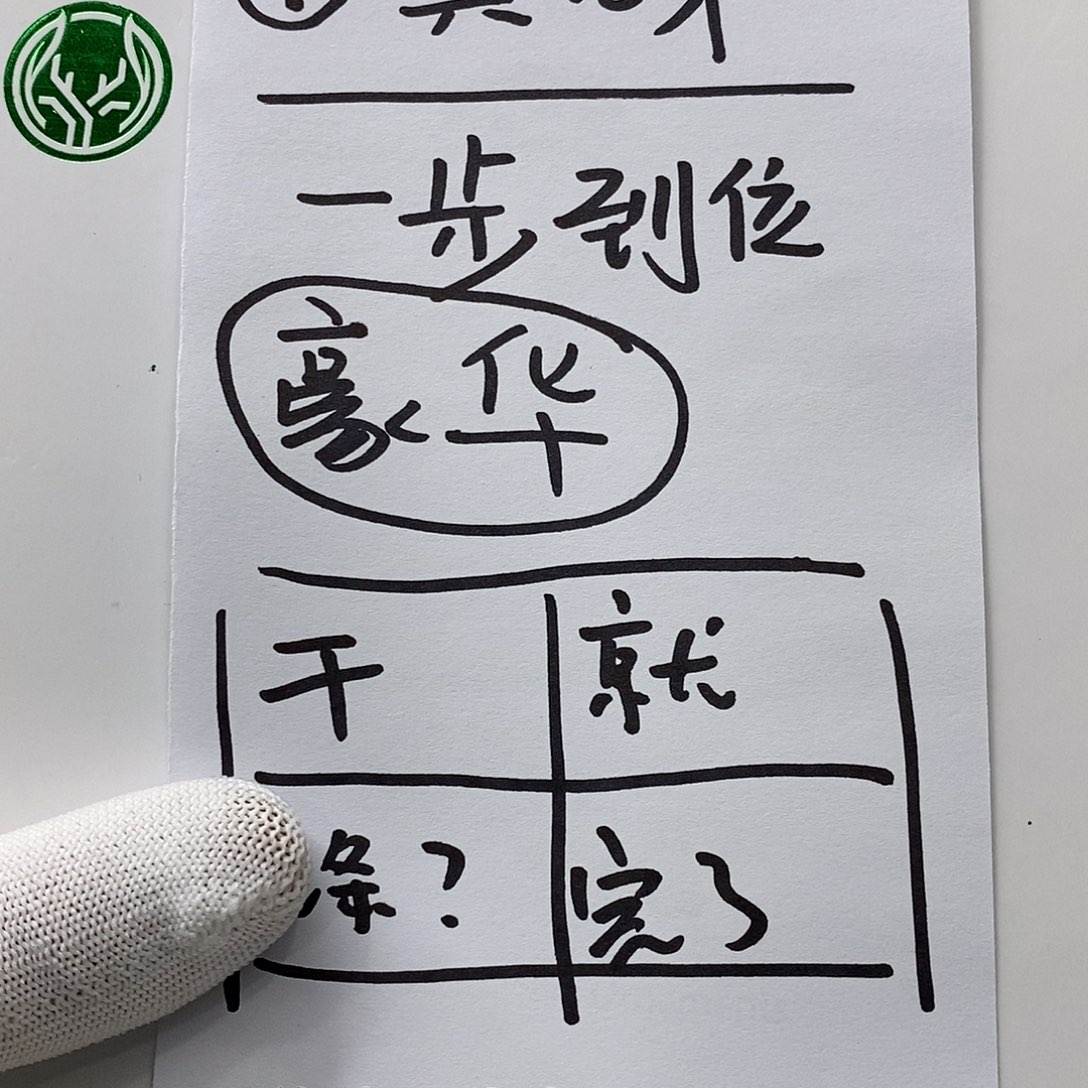 一步到位
豪华
干 就
条? 完了